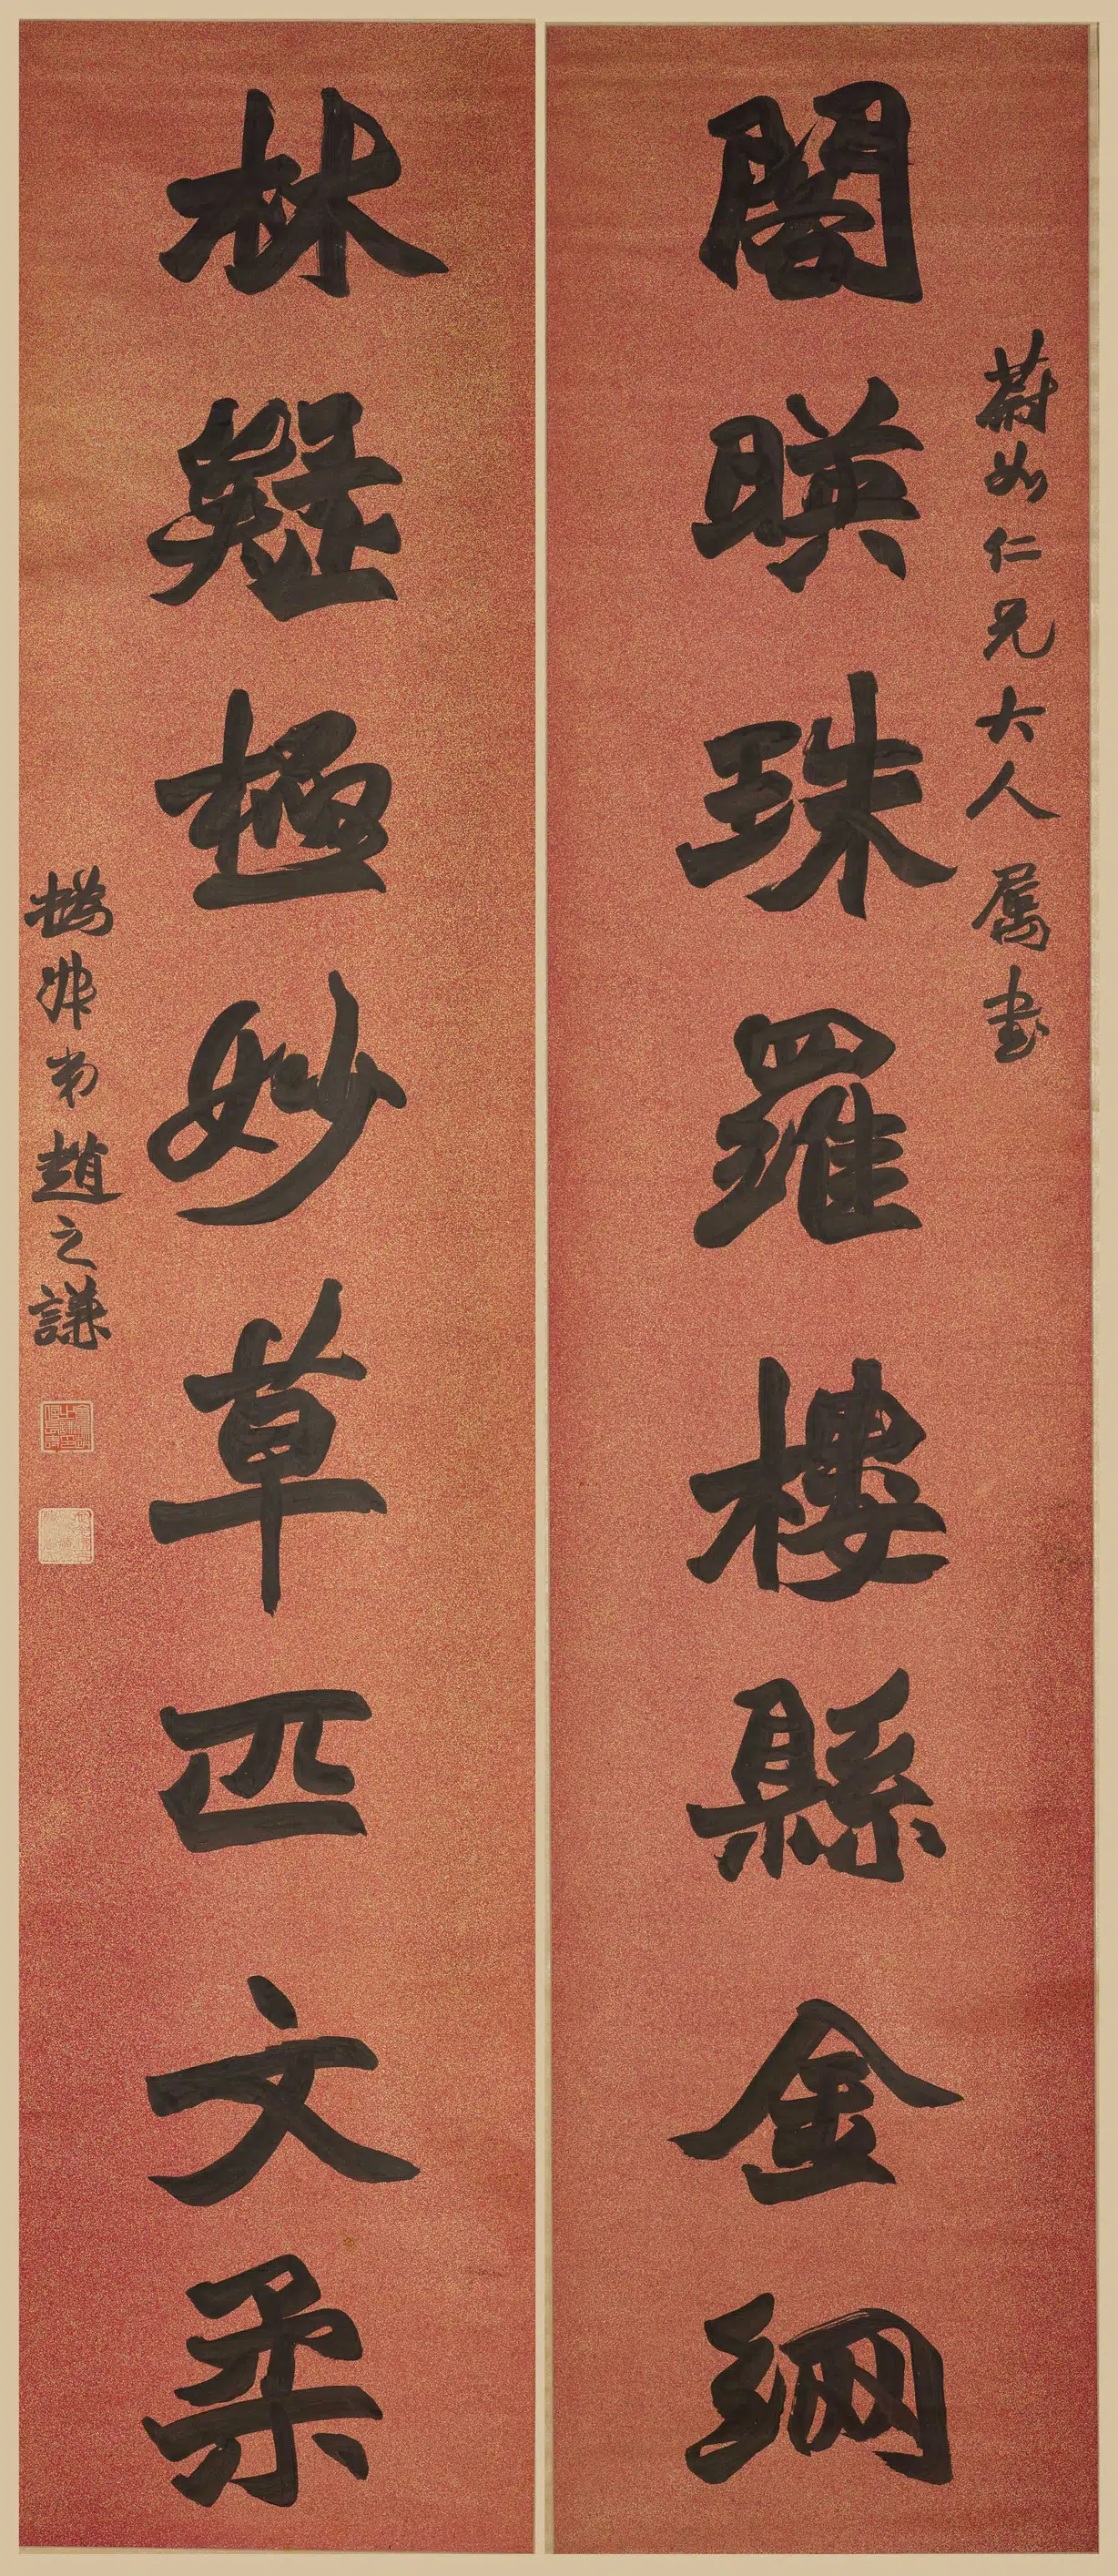 蔚如仁兄大人属書
閣暎珠羅樓縣金網
林疑極妙草匹文柔
撝叔弟趙之謙